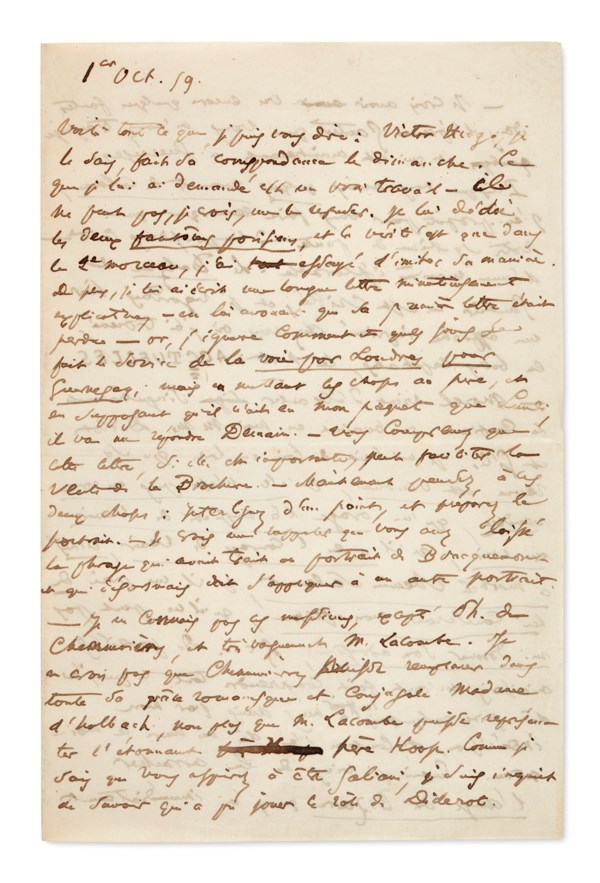 1er Oct. 59.
Voilà tout ce que je puis vous dire : Victor Hugo, je
le sais, fait sa correspondance le dimanche. Ce
que je lui ai demandé est un vrai travail – Il
ne peut pas, je crois, me le refuser. Je lui dédie
les deux fantômes parisiens, et la vérité est que dans
le 2e morceau, j'ai tout essayé d'imiter sa manière.
De plus, je lui ai écrit une longue lettre minutieusement
explicative, – en lui avouant que la première lettre était
perdue – or, j'ignore comment et quels jours se
fait le service de la voie par Londres pour
Guernesey ; mais en mettant les choses au pire, et
en supposant qu'il n'ait eu mon paquet que Lundi,
il va me répondre Demain. – Vous comprenez que
cette lettre, si elle est importante, peut faciliter la
vente de la Brochure. – Maintenant pensez à ces
deux choses : et préparez le
portrait. – Je crois me rappeler que vous avez laissé
la phrase qui avait trait au portrait de Bracquemond
et qui désormais doit s'appliquer à un autre portrait.
– Je ne connais pas ces messieurs, excepté Ph. de
Chennevières, et très vaguement M. Lacombe. Je
ne crois pas que Chennevières puisse remplacer dans
toute sa grâce romanesque et conjugale Madame
d'holbach, non plus que M. Lacombe puisse représen-
ter l'étonnant père Hoop. Comme je
sais que vous aspirez à être Galiani, je suis inquiet
de savoir qui a pu jouer le rôle de Diderot.